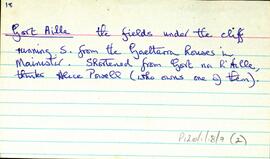 18
Gort Aille the fields under the cliff
running S. from the Gaeltarra houses in
Mainister. Shortened from Gort na h'Aille,
thinks Alice Powell (who owns one of them).
P120/1/8/9 (2)